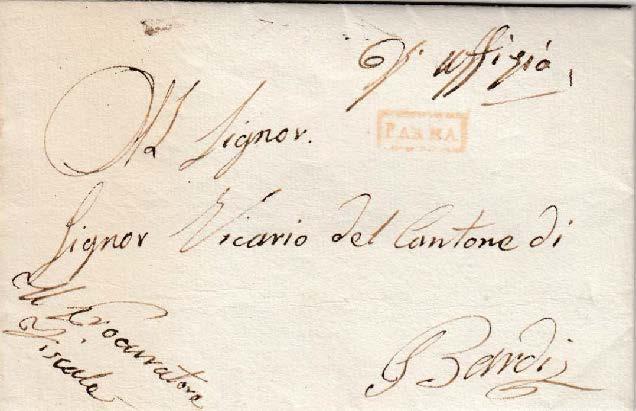 D' uffizio
PARMA
Al Signor.
Signor Vicario del Cantone di
Bardi
Il Procuratore
Fiscale